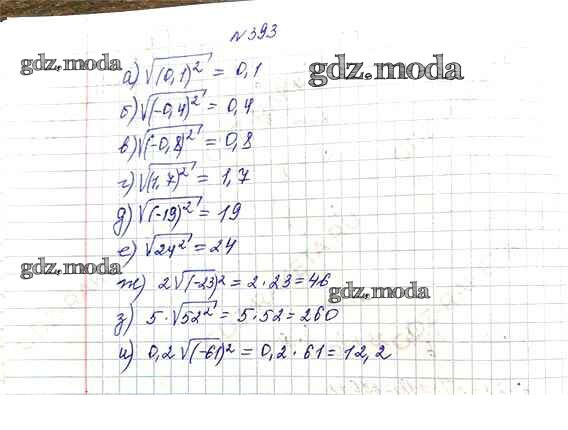 №393
gdz.moda
gdz.moda
а) √(0,1)² = 0,1
б) √(-0,4)² = 0,4
в) √(-0,8)² = 0,8
г) √(1,7)² = 1,7
д) √(-19)² = 19
е) √24² = 24
gdz.moda
ж) 2√(-23)² = 2·23 = 46
gdz.moda
з) 5·√52² = 5·52 = 260
и) 0,2√(-61)² = 0,2·61 = 12,2